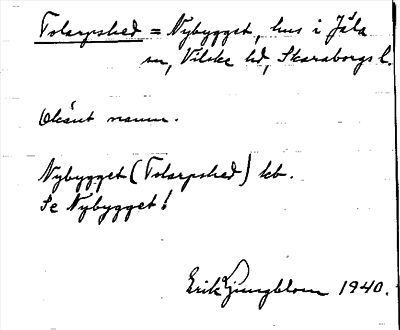 Tolarpshed = Nybygget, hus i Jäla
sn, Vilske hd, Skaraborgs l.
Okänt namn.
Nybygget (Tolarpshed) kb.
Se Nybygget!
Erik Ljungblom 1940.